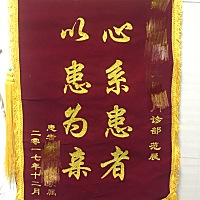 诊部 范展
心系患者
以患为亲
患者
二零一七年十二月